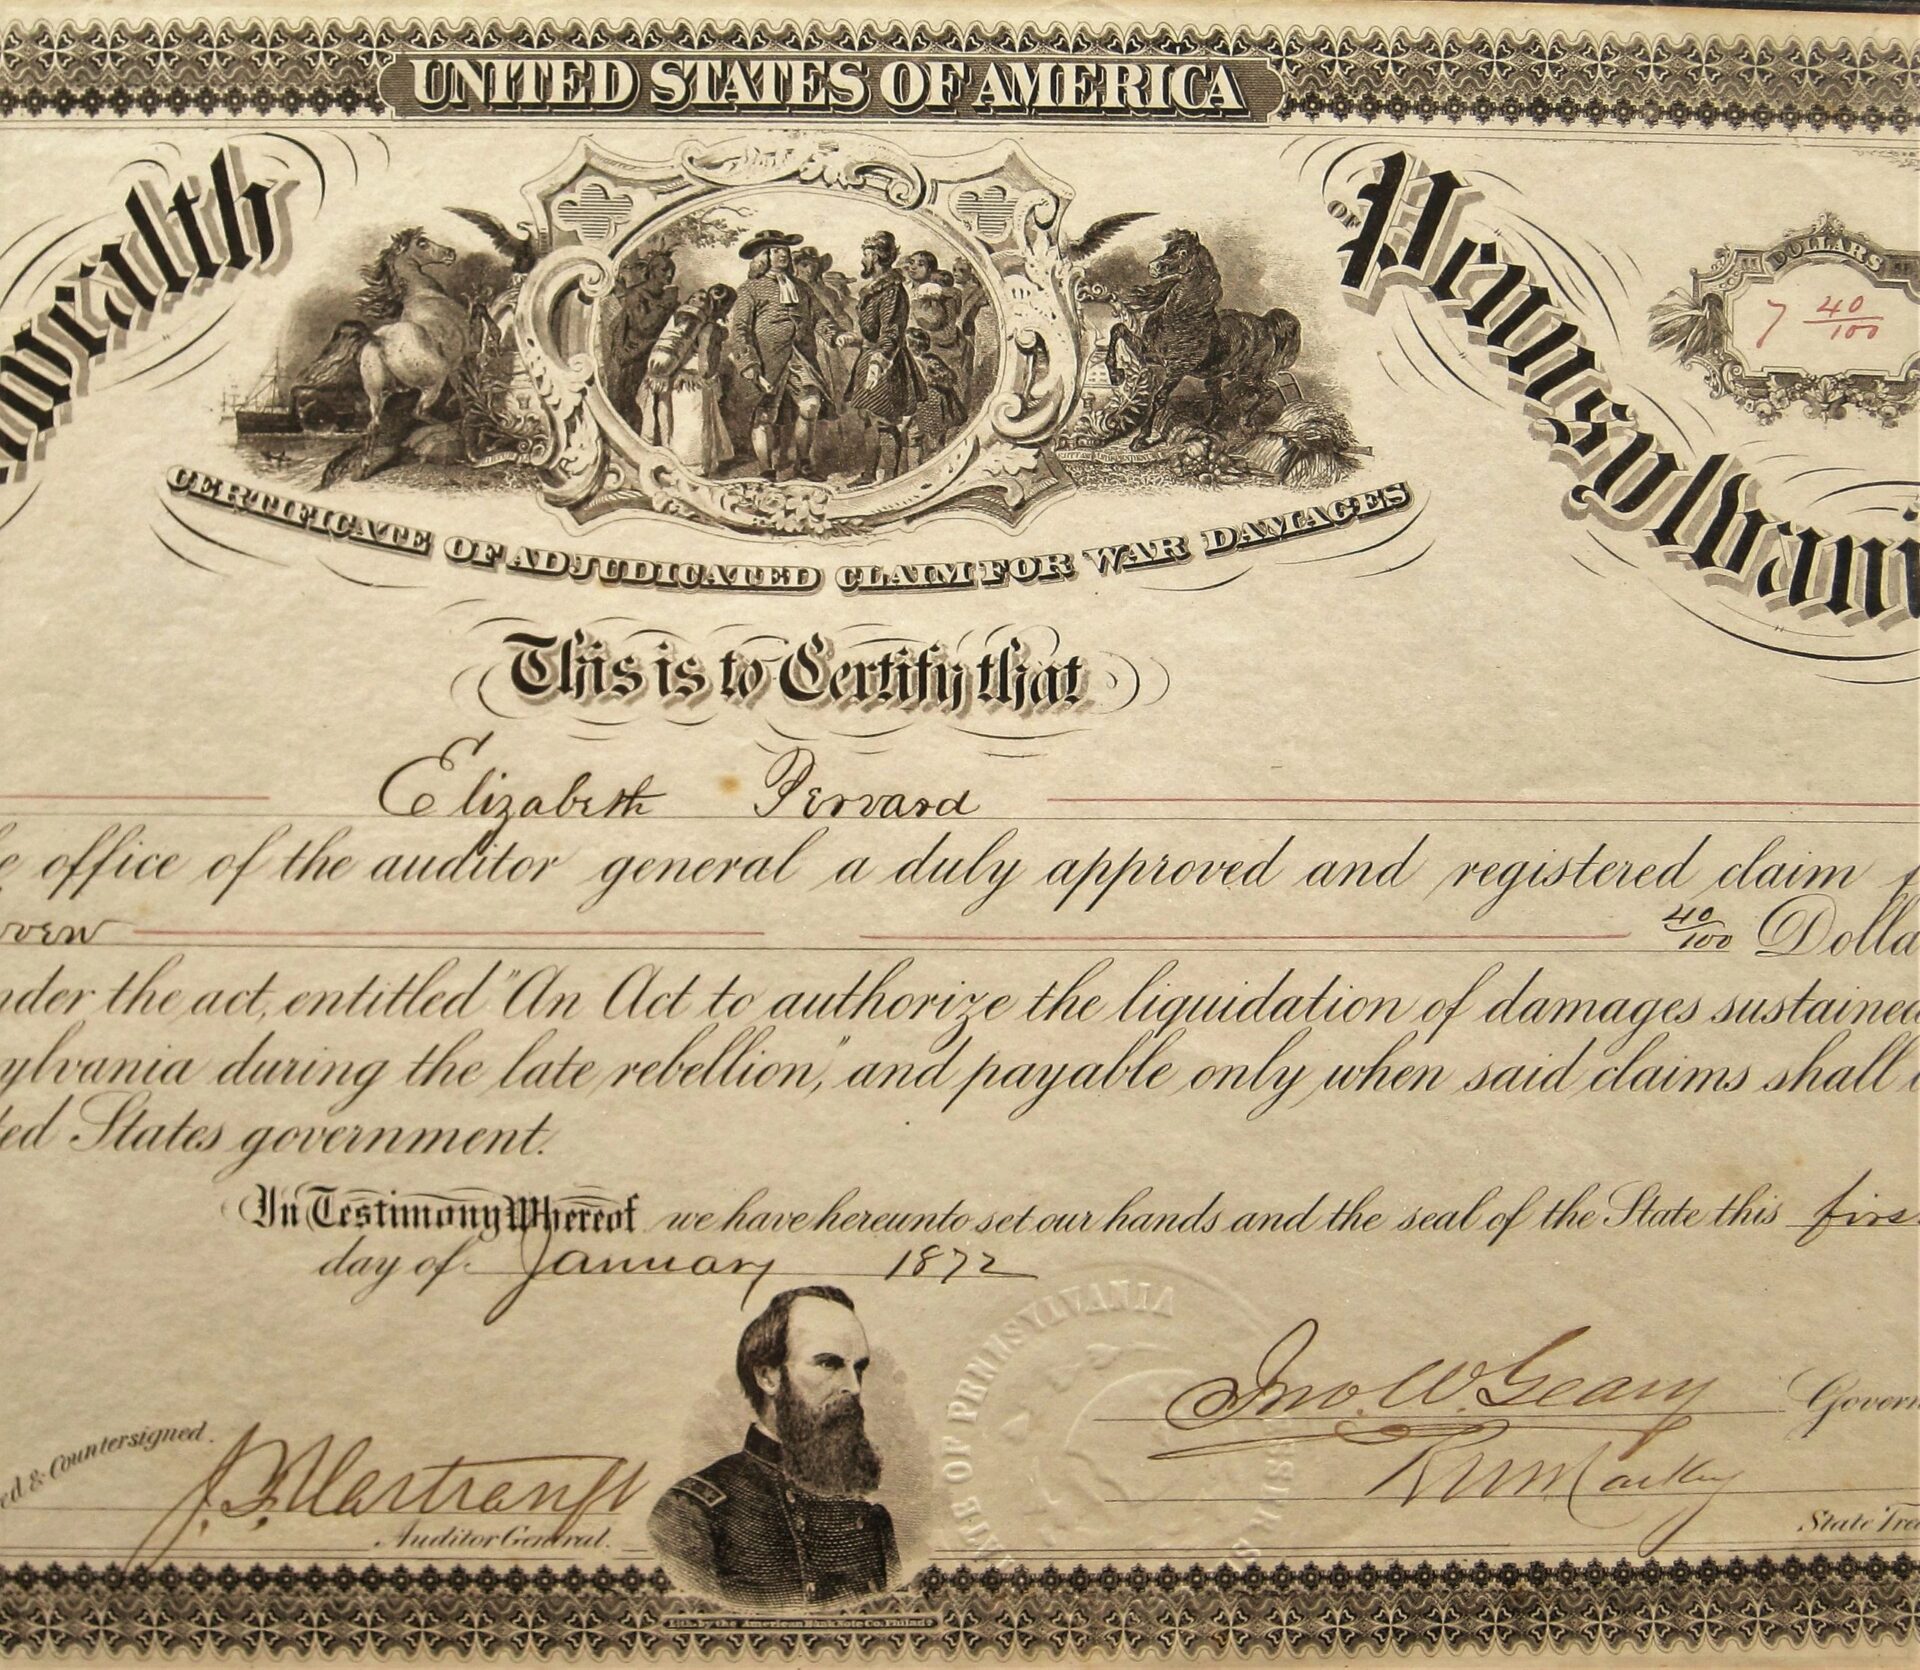 UNITED STATES OF AMERICA
wealth OF Pennsylvani
DOLLARS
7 40/100
CERTIFICATE OF ADJUDICATED CLAIM FOR WAR DAMAGES
This is to Certify that
Elizabeth
office of the auditor general a duly approved and registered claim
40/100 Dolla
nder the act, entitled "An Act to authorize the liquidation of damages sustained
ylvania during the late rebellion," and payable only when said claims shall
ed States government.
In Testimony Whereof we have hereunto set our hands and the seal of the State this firs
day of January 1872
OF PENNSYLVANIA
Jno. W. Geary Govern
ed & Countersigned.
J. F. Hartranft
R W Mackey
Auditor General.
State Trea
Lith. by the American Bank Note Co. Philada